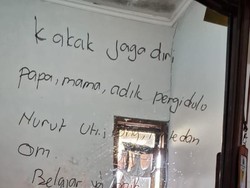 Kakak jaga diri
papa, mama, adik pergi dulo
Nurut Uti, dan
Om.
Belajar